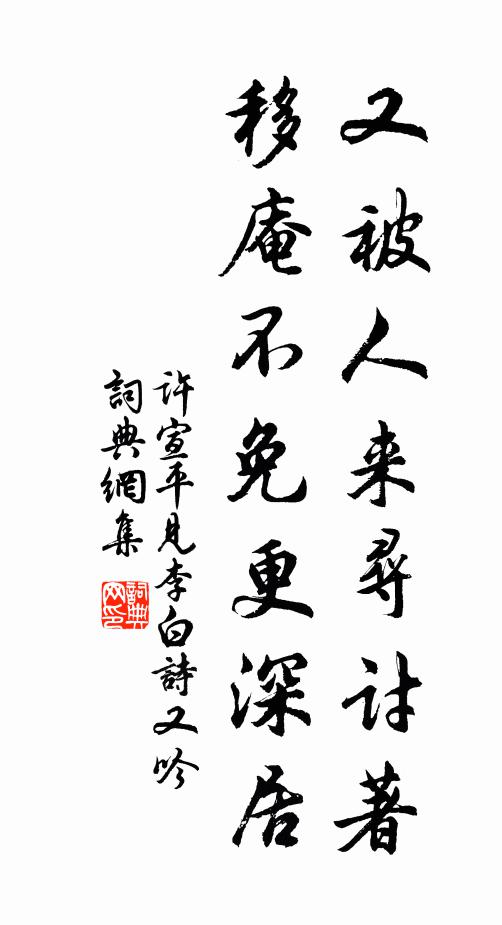 又被人来尋討著
移庵不免更深居
许宣平見李白詩又吟
詞典網集
詞典
网印